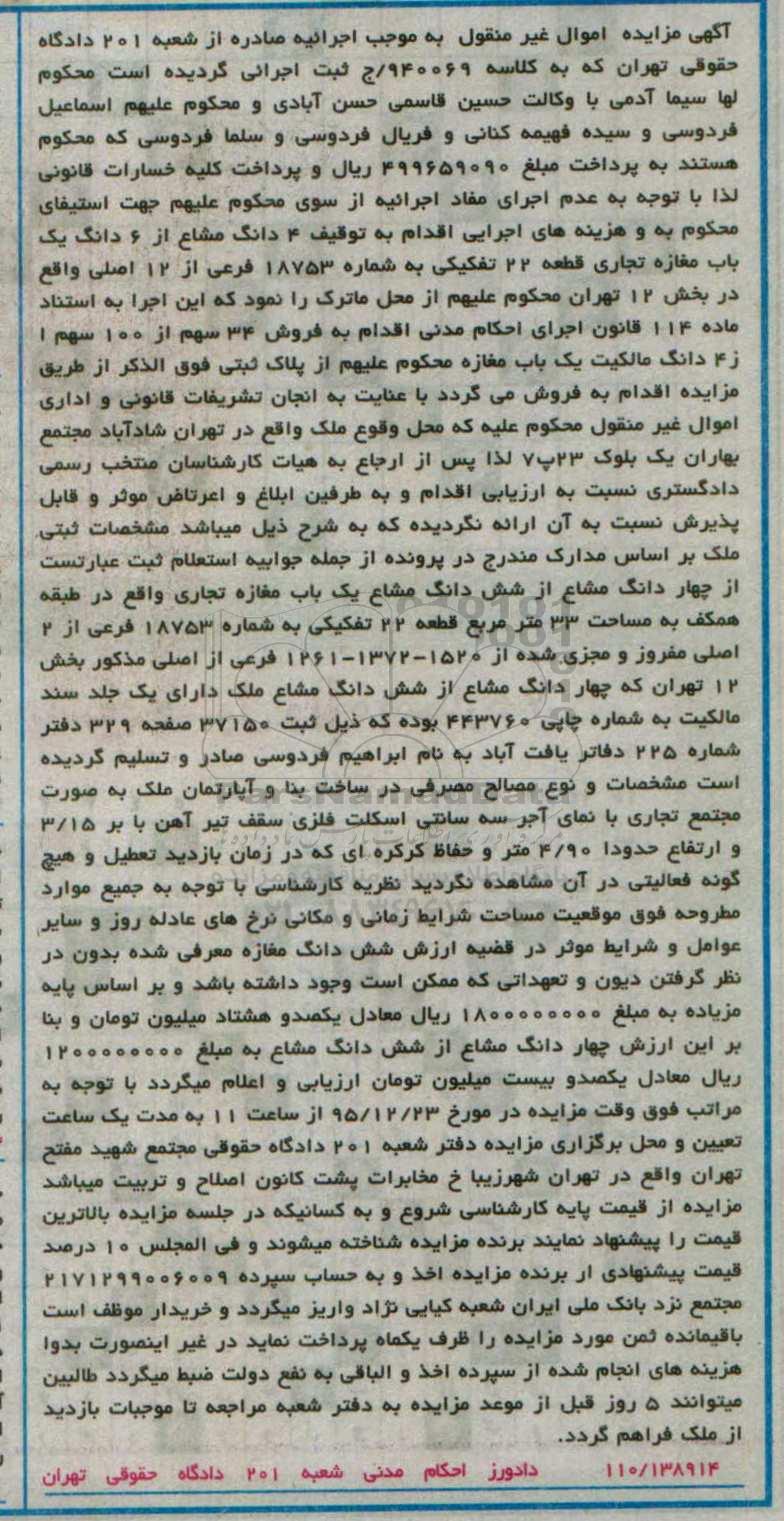 آگهی مزایده اموال غیر منقول به موجب اجرائیه صادره از شعبه ۲۰۱ دادگاه
حقوقی تهران که به کلاسه ۹۴۰۰۶۹/ج ثبت اجرائی گردیده است محکوم
لها سیما آدمی با وکالت حسین قاسمی حسن آبادی و محکوم علیهم اسماعیل
فردوسی و سیده فهیمه کنانی و فریال فردوسی و سلما فردوسی که محکوم
هستند به پرداخت مبلغ ۴۹۹۶۵۹۰۹۰ ریال و پرداخت کلیه خسارات قانونی
لذا با توجه به عدم اجرای مفاد اجرائیه از سوی محکوم علیهم جهت استیفای
محکوم به و هزینه های اجرایی اقدام به توقیف ۴ دانگ مشاع از ۶ دانگ یک
باب مغازه تجاری قطعه ۲۲ تفکیکی به شماره ۱۸۷۵۳ فرعی از ۱۲ اصلی واقع
در بخش ۱۲ تهران محکوم علیهم از محل ماترک را نمود که این اجرا به استناد
ماده ۱۱۴ قانون اجرای احکام مدنی اقدام به فروش ۳۴ سهم از ۱۰۰ سهم ا
ز۴ دانگ مالکیت یک باب مغازه محکوم علیهم از پلاک ثبتی فوق الذکر از طریق
مزایده اقدام به فروش می گردد با عنایت به انجان تشریفات قانونی و اداری
اموال غیر منقول محکوم علیه که محل وقوع ملک واقع در تهران شادآباد مجتمع
بهاران یک بلوک ۲۳پ۷ لذا پس از ارجاع به هیات کارشناسان منتخب رسمی
دادگستری نسبت به ارزیابی اقدام و به طرفین ابلاغ و اعرتاض موثر و قابل
پذیرش نسبت به آن ارائه نگردیده که به شرح ذیل میباشد مشخصات ثبتی
ملک بر اساس مدارک مندرج در پرونده از جمله جوابیه استعلام ثبت عبارتست
از چهار دانگ مشاع از شش دانگ مشاع یک باب مغازه تجاری واقع در طبقه
همکف به مساحت ۳۳ متر مربع قطعه ۲۲ تفکیکی به شماره ۱۸۷۵۳ فرعی از ۲
اصلی مفروز و مجزی شده از ۱۵۲۰-۱۳۷۲-۱۲۶۱ فرعی از اصلی مذکور بخش
۱۲ تهران که چهار دانگ مشاع از شش دانگ مشاع ملک دارای یک جلد سند
مالکیت به شماره چاپی ۴۴۳۷۶۰ بوده که ذیل ثبت ۳۷۱۵۰ صفحه ۳۲۹ دفتر
شماره ۲۲۵ دفاتر یافت آباد به نام ابراهیم فردوسی صادر و تسلیم گردیده
است مشخصات و نوع مصالح مصرفی در ساخت بنا و آپارتمان ملک به صورت
مجتمع تجاری با نمای آجر سه سانتی اسکلت فلزی سقف تیر آهن با بر ۳/۱۵
و ارتفاع حدودا ۴/۹۰ متر و حفاظ کرکره ای که در زمان بازدید تعطیل و هیچ
گونه فعالیتی در آن مشاهده نگردید نظریه کارشناسی با توجه به جمیع موارد
مطروحه فوق موقعیت مساحت شرایط زمانی و مکانی نرخ های عادله روز و سایر
عوامل و شرایط موثر در قضیه ارزش شش دانگ مغازه معرفی شده بدون در
نظر گرفتن دیون و تعهداتی که ممکن است وجود داشته باشد و بر اساس پایه
مزیاده به مبلغ ۱۸۰۰۰۰۰۰۰۰ ریال معادل یکصدو هشتاد میلیون تومان و بنا
بر این ارزش چهار دانگ مشاع از شش دانگ مشاع به مبلغ ۱۲۰۰۰۰۰۰۰۰
ریال معادل یکصدو بیست میلیون تومان ارزیابی و اعلام میگردد با توجه به
مراتب فوق وقت مزایده در مورخ ۹۵/۱۲/۲۳ از ساعت ۱۱ به مدت یک ساعت
تعیین و محل برگزاری مزایده دفتر شعبه ۲۰۱ دادگاه حقوقی مجتمع شهید مفتح
تهران واقع در تهران شهرزیبا خ مخابرات پشت کانون اصلاح و تربیت میباشد
مزایده از قیمت پایه کارشناسی شروع و به کسانیکه در جلسه مزایده بالاترین
قیمت را پیشنهاد نمایند برنده مزایده شناخته میشوند و فی المجلس ۱۰ درصد
قیمت پیشنهادی ار برنده مزایده اخذ و به حساب سپرده ۲۱۷۱۲۹۹۰۰۶۰۰۹
مجتمع نزد بانک ملی ایران شعبه کیایی نژاد واریز میگردد و خریدار موظف است
باقیمانده ثمن مورد مزایده را ظرف یکماه پرداخت نماید در غیر اینصورت بدوا
هزینه های انجام شده از سپرده اخذ و الباقی به نفع دولت ضبط میگردد طالبین
میتوانند ۵ روز قبل از موعد مزایده به دفتر شعبه مراجعه تا موجبات بازدید
از ملک فراهم گردد.
۱۱۰/۱۳۸۹۱۴ دادورز احکام مدنی شعبه ۲۰۱ دادگاه حقوقی تهران